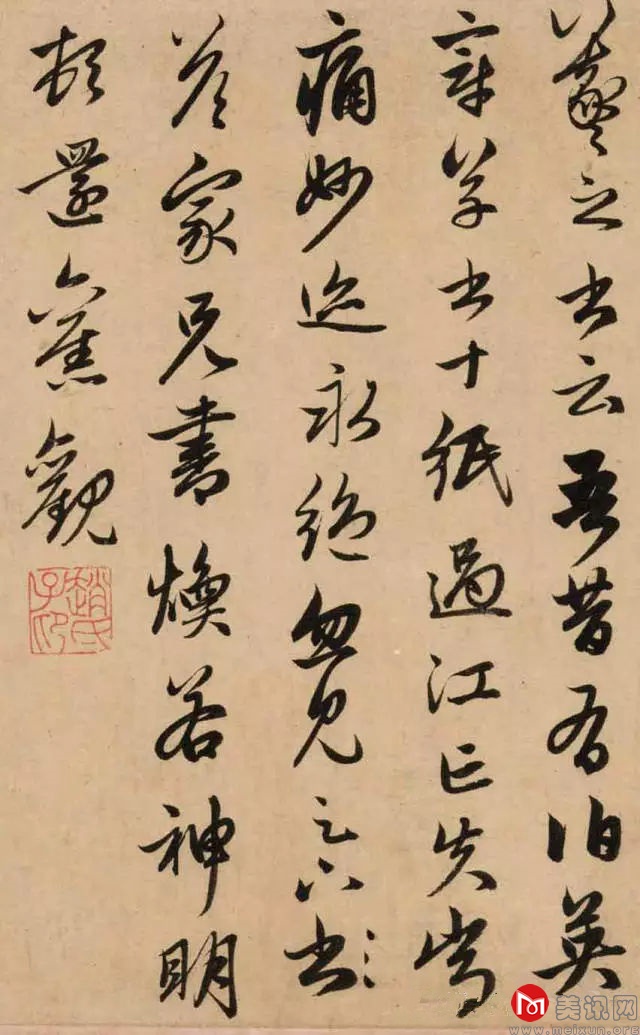 羲之書云吾昔有伯英
章草書十紙過江亡失常
痛妙迹永絕忽見足下書
答家兄書煥若神明
頓還舊觀
趙氏子昂
美讯网
www.meixun.org